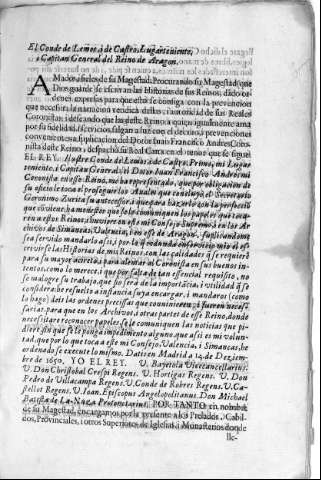 El Conde de Lemos, i de Castro, Lugarteniente,
i Capitan General del Reino de Aragon.
AMados i fieles de su Magestad. Procurando su Magestad (que
Dios guarde) se escrivan las Historias de sus Reinos, dado or-
denes expressas para que esto se consiga con la prevencion
que necessita la narracion veridica dellas, i autoridad de sus Reales
Coronistas; i deseando que las deste Reino, a quien igualmente ama
por su fidelidad, i servicios, salgan a luz con el decoro, i prevenciones
convenientes, a suplicacion del Doctor Iuan Francisco Andres, Coro-
nista deste Reino, despachò su Real Carta en el tenor que se sigue.
EL REY. Ilustre Conde de Lemos, i de Castro, Primo, mi Lugar-
teniente, i Capitan General. El Doctor Iuan Francisco Andres mi
Coronista en esse Reino, me ha representado, que por obligacion de
su oficio le toca el proseguir los Anales que concluyò el Secretario
Geronimo Zurita su antecessor, i que para hazerlo con la provision
que conviene, ha menester que se le comuniquen los papeles que toca-
ren a estos Reinos, i huviere en este mi Consejo Supremo, en los Ar-
chivos de Simancas, Valencia, i en esse de Aragon, suplicandome
sea servido mandarlo assi, i por lo que
crevir se las Historias de mis Reinos, con las calidades que se requierē
para su mayor acierto, i para alentar al Coronista en sus buenos in-
tentos, como lo merece, i que por falta de tan essencial requisito, no
se malogre su trabajo, que no serà de la importancia, i utilidad que se
considera; he resuelto a instancia suya encargar, i mandaros (como
lo hago) deis las ordenes precissas que convinieren, i fueren neces-
sarias para que en los Archivos, i otras partes de esse Reino, donde
necessitare reconocer papeles, se le comuniquen las noticias que pi-
diere, sin que se le ponga impedimento alguno, que assi es mi volun-
tad, que por lo que toca a este mi Consejo, Valencia, i Simancas, he
ordenado se execute lo mismo. Datis en Madrid a 14. de Dezem-
bre de 1650. YO EL REY. V. Bayetola Vicecancellarius.
V. Don Christobal Crespi Regens. V. Hortigas Regens. V. Don
Pedro de Villacampa Regens. V. Conde de Robres Regens. V. Ca-
Pellot Regens. V. Ioan. Episcopus Angelopolitanus. Don Michael
Batista de La-Nuza Protonotarius. POR TANTO en nombre
de su Magestad, encargamos por la presente a los Prelados, Cabil-
dos, Provinciales, i otros Superiores de Iglesias, i Monasterios donde
lle-